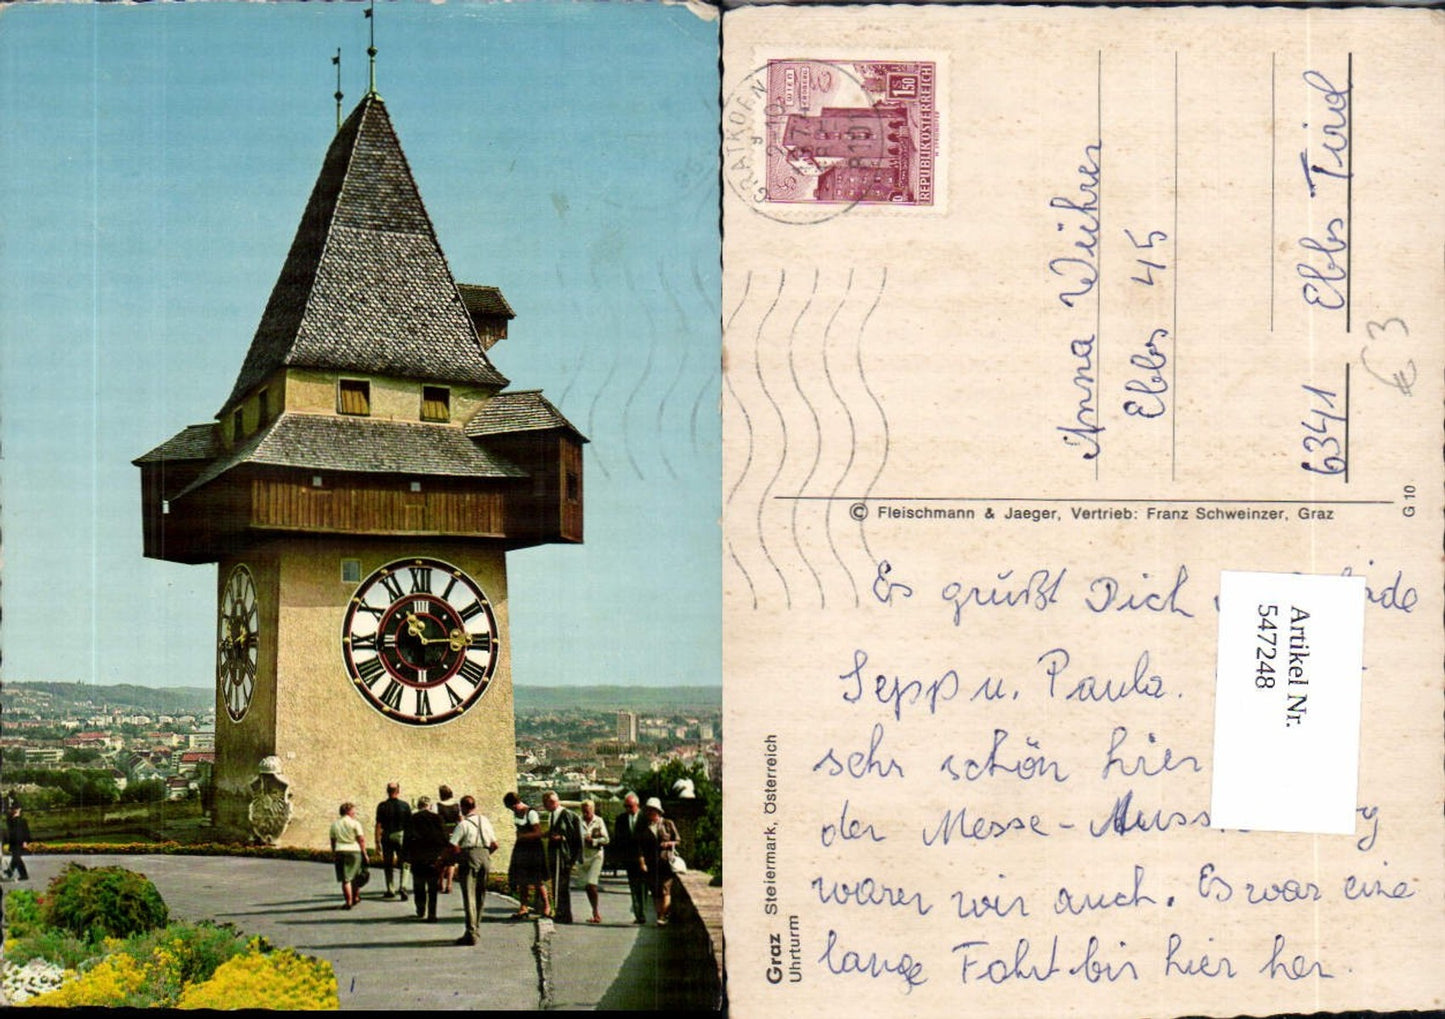 GRATKORN
REPUBLIK ÖSTERREICH
1.50
Anna Wührer
Ebbs 45
6341 Ebbs Tirol
€ 3
G 10
© Fleischmann & Jaeger, Vertrieb: Franz Schweinzer, Graz
Es grüßt Dich
Sepp u. Paula.
sehr schön hier
der Messe-
waren wir auch. Es war eine
lange Fahrt bis hier her.
Artikel Nr.
547248
Graz Steiermark, Österreich
Uhrturm